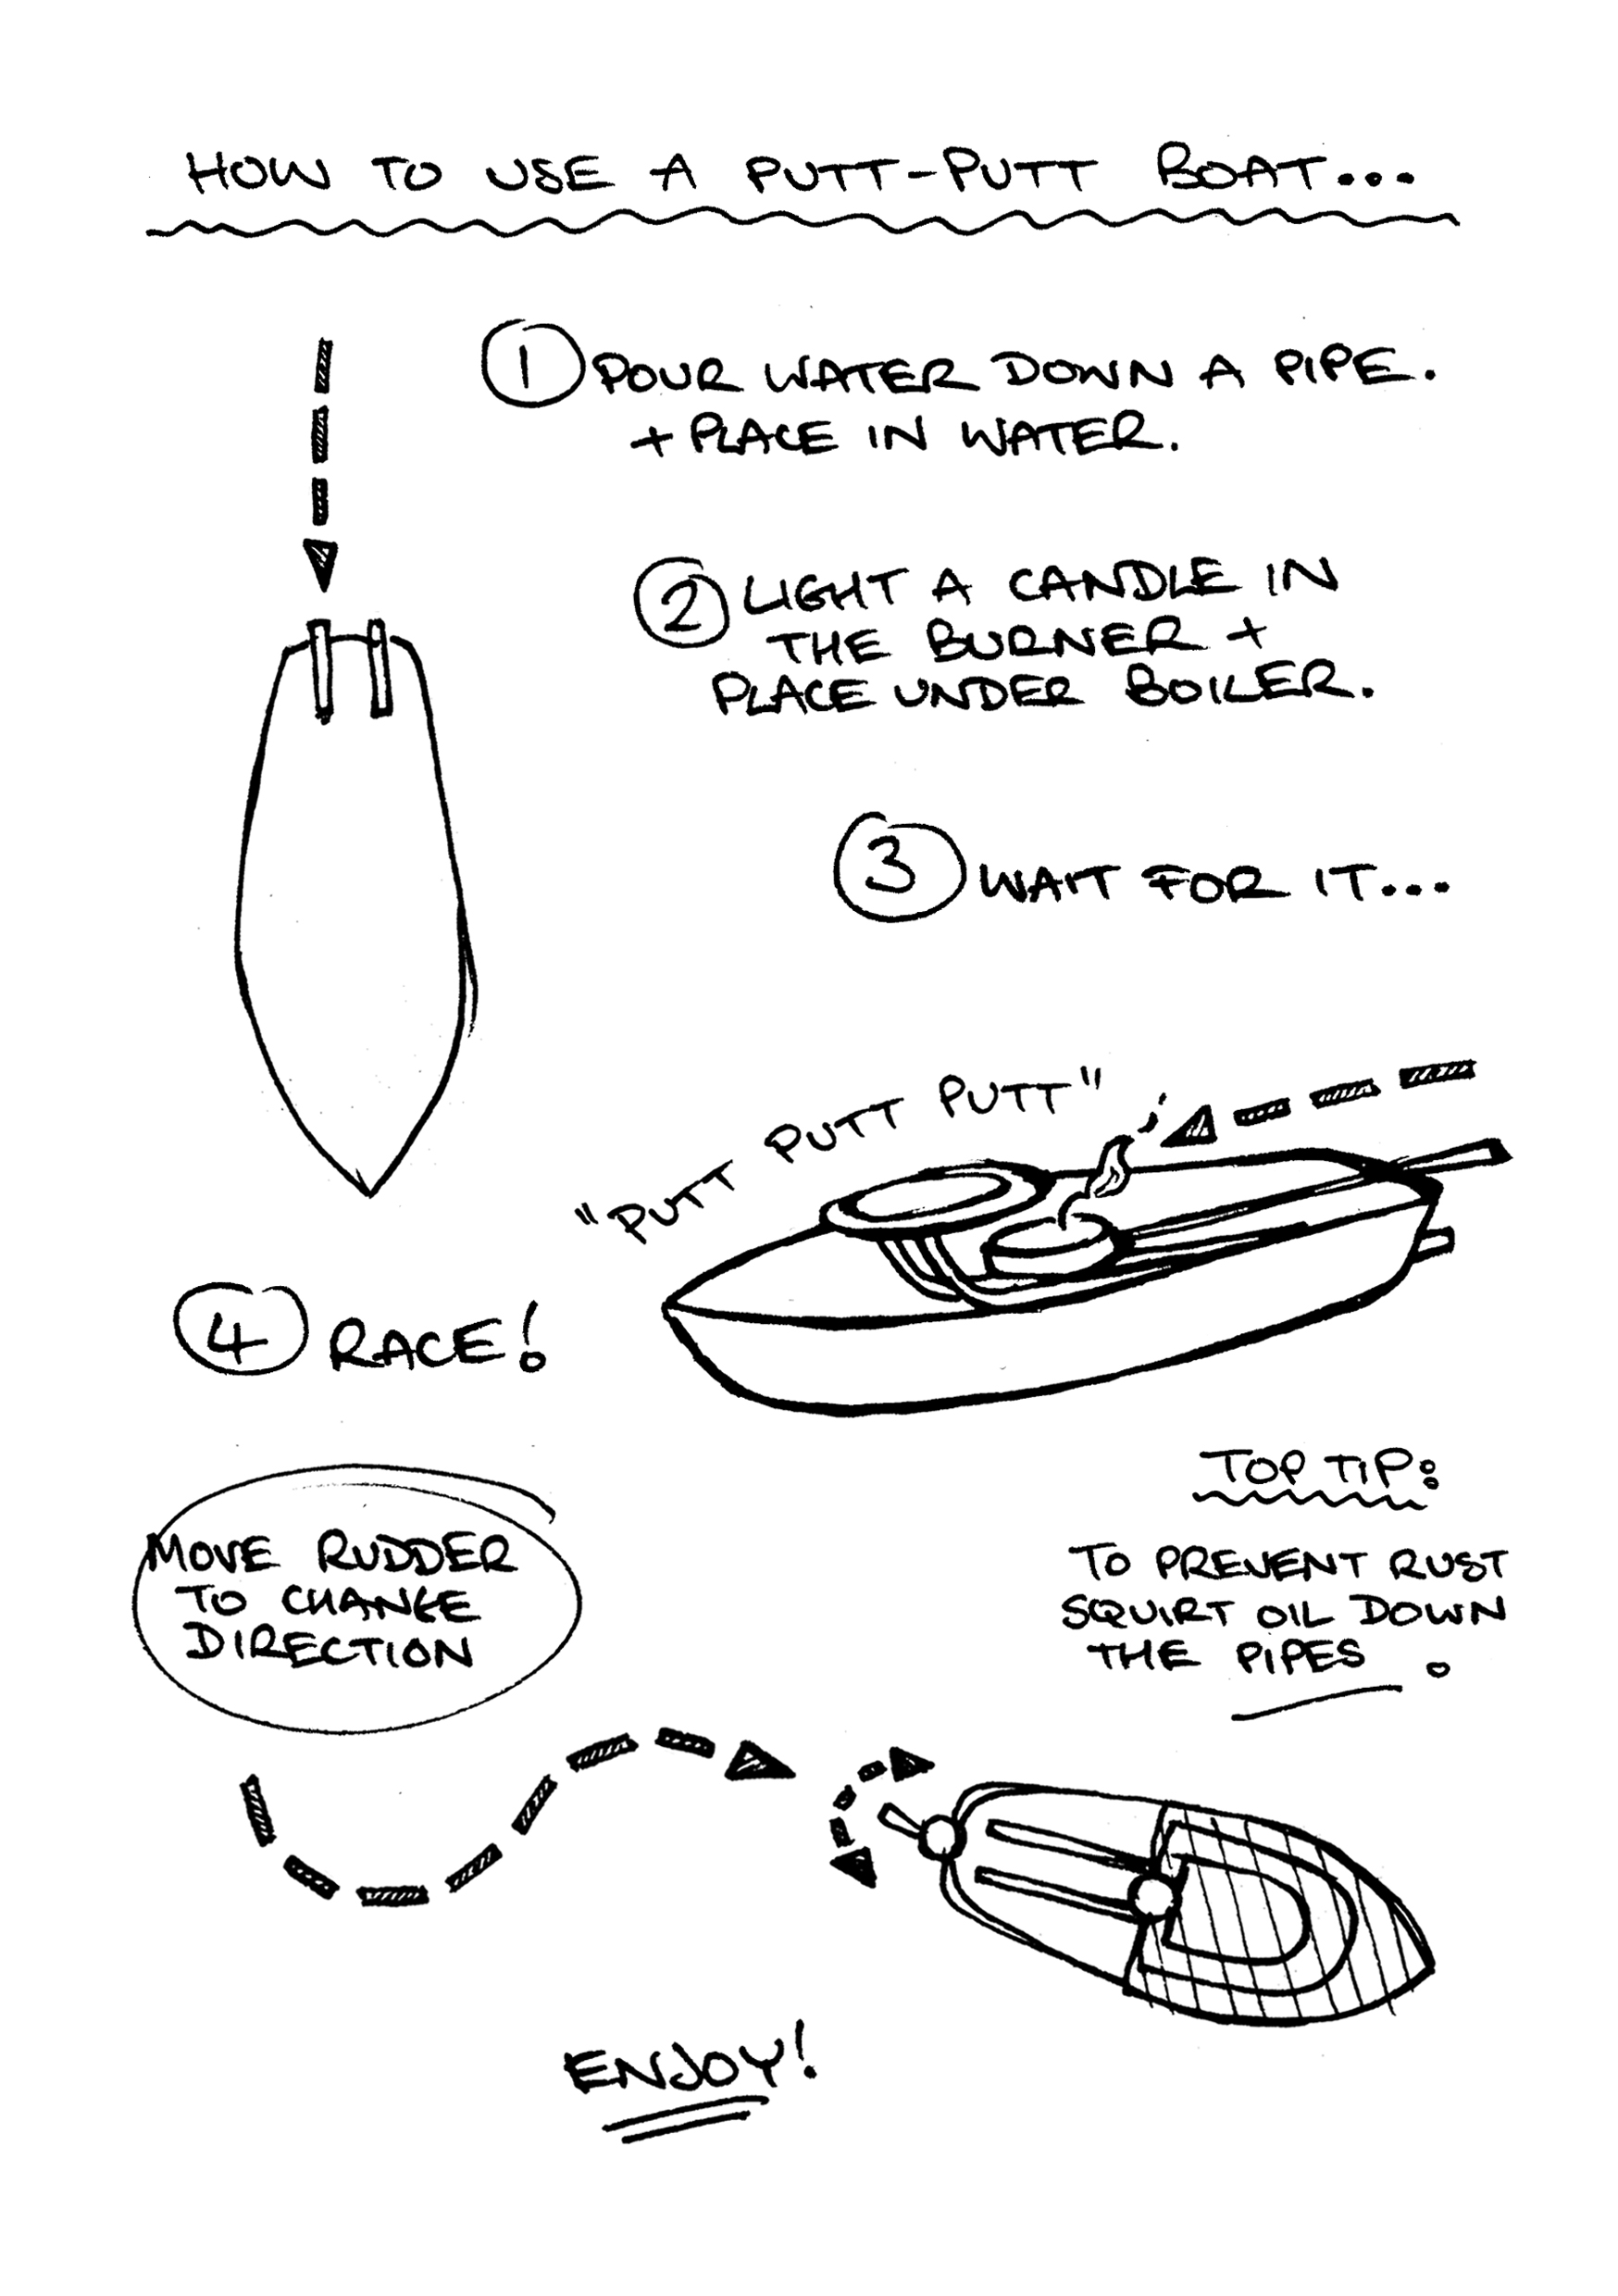 HOW TO USE A PUTT-PUTT BOAT...
1 POUR WATER DOWN A PIPE.
+ PLACE IN WATER.
2 LIGHT A CANDLE IN
THE BURNER +
PLACE UNDER BOILER.
3 WAIT FOR IT...
"PUTT PUTT PUTT"
4 RACE!
MOVE RUDDER
TO CHANGE
DIRECTION
TOP TIP:
TO PREVENT RUST
SQUIRT OIL DOWN
THE PIPES.
ENJOY!